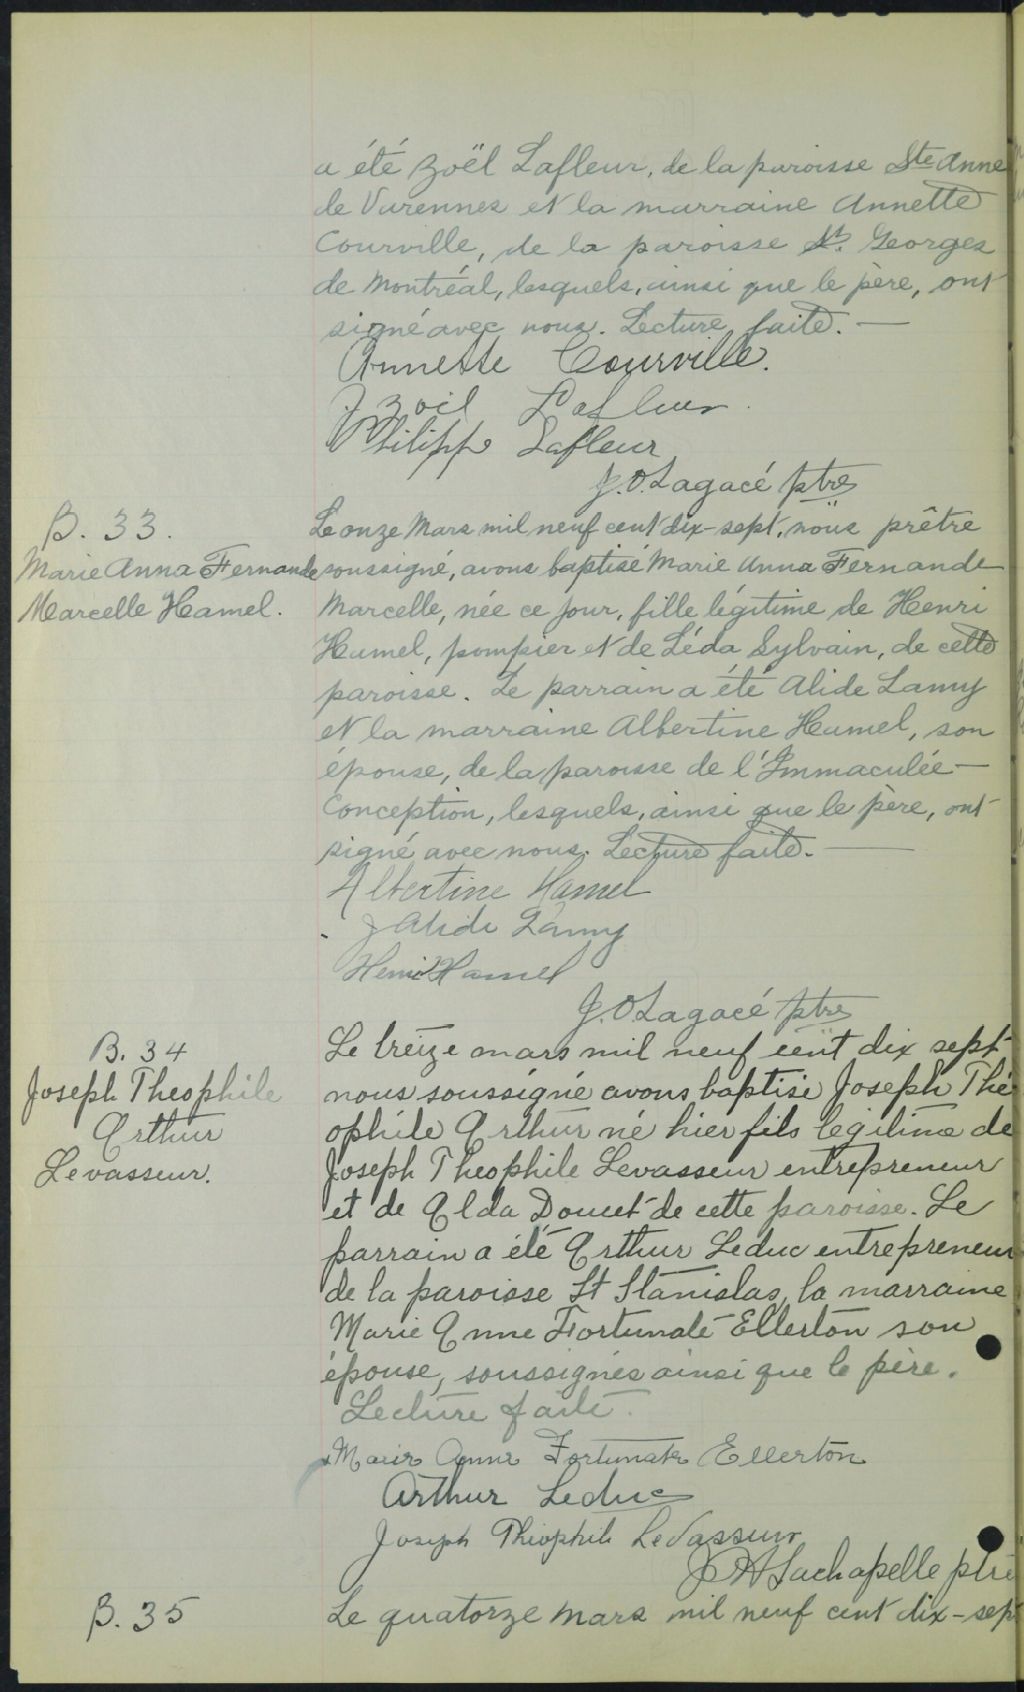 a été Zoël Lafleur, de la paroisse Ste Anne
de Varennes et la marraine Annette
Courville, de la paroisse St. Georges
de Montréal, lesquels, ainsi que le père, ont
signé avec nous. Lecture faite. —
Annette Courville.
J Zoil Lafleur.
Philippe Lafleur
J.O. Lagacé ptre
B. 33.
Marie Anna Fernande
Marcelle Hamel.
Le onze Mars mil neuf cent dix-sept, nous prêtre
soussigné, avons baptisé Marie Anna Fernande
Marcelle, née ce jour, fille légitime de Henri
Hamel, pompier et de Léda Sylvain, de cette
paroisse. Le parrain a été Alide Lamy
et la marraine Albertine Hamel, son
épouse, de la paroisse de l'Immaculée —
Conception, lesquels, ainsi que le père, ont
signé avec nous. Lecture faite. —
Albertine Hamel
J Alide Lamy
Henri Hamel
J.O Lagacé ptre
B. 34
Joseph Theophile
Arthur
Levasseur.
Le treize mars mil neuf cent dix sept
nous soussigné avons baptisé Joseph Thé
ophile Arthur né hier fils légitime de
Joseph Theophile Levasseur entrepreneur
et de Alda Doucet de cette paroisse. Le
parrain a été Arthur Leduc entrepreneur
de la paroisse St Stanislas, la marraine
Marie Anne Fortunate Ellerton son
épouse, soussignés ainsi que le père.
Lecture faite.
Marie Anne Fortunate Ellerton
Arthur Leduc
Joseph Théophile LeVasseur
J A Lachapelle ptre
B. 35
Le quatorze mars mil neuf cent dix-sept